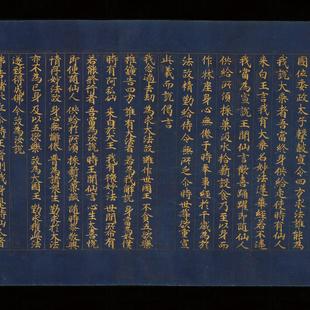 國位委政太子擊鼓宣令四方求法誰能為
我說大乘者吾當終身供給走使時有仙人
來白王言我有大乘名妙法蓮華經若不違
我當為宣說王聞仙言歡喜踊躍即隨仙人
供給所須採菓汲水拾薪設食乃至以身而
作牀座身心無惓于時奉事經於千歲為於
法故精勤給侍令無所乏尒時世尊欲重宣
此義而說偈言
我念過去劫 為求大法故 雖作世國王 不貪五欲樂
搥鍾告四方 誰有大法者 若為我解說 身當為奴僕
時有阿私仙 來白於大王 我有微妙法 世間所希有
若能修行者 吾當為汝說 時王聞仙言 心生大喜悅
即便隨仙人 供給於所須 採薪及菓蓏 隨時恭敬與
情存妙法故 身心無懈惓 普為諸眾生 勤求於大法
亦不為己身 及以五欲樂 故為大國王 勤求獲此法
遂致得成佛 今故為汝說
佛告諸比丘尒時王者則我身是時仙人者